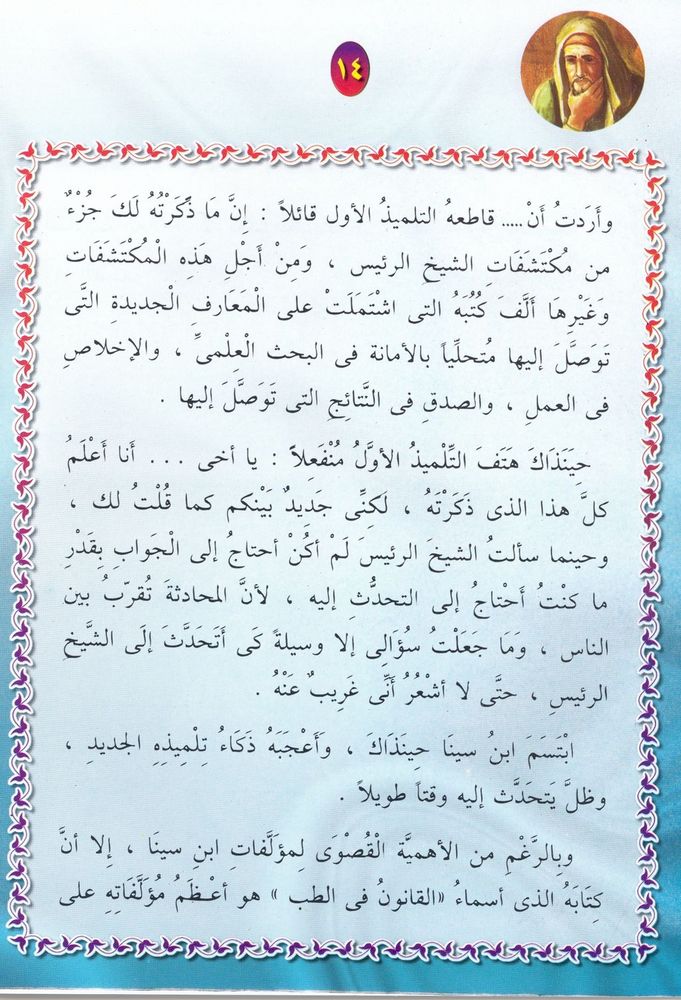 ١٤
وأَردتُ أَنْ ..... قاطعهُ التلميذُ الأول قائلاً : إِنَّ مَا ذَكَرْتُهُ لَكَ جُزْءٌ
من مكْتشَفَاتِ الشيخِ الرئيس ، وَمِنْ أَجْلِ هَذِهِ الْمكْتَشَفَات
وَغَيْرِهَا أَلَّفَ كُتُبَهُ التى اشْتَمَلَتْ على الْمَعَارِفِ الْجديدةِ التَّى
تَوَصَّلَ إليها مُتحلِّياً بالأمانة فى البحث الْعِلْمىِّ ، والإخلاصِ
فى العملِ ، والصدقِ فى النَّتائِجِ التى تَوَصَّلَ إليها .
حِينَذَاكَ هتَفَ التِّلْميذُ الأوَّلُ مُنْفَعِلاً : يا أخى ... أَنا أَعْلَمُ
كلَّ هذا الذى ذَكَرْتَهُ ، لَكِنِّى جَدِيدٌ بَيْنكم كما قُلْتُ لك ،
وحينما سألتُ الشيخَ الرئيسَ لَمْ أكُنْ أحتاجُ إلى الْجَواب بِقَدْرِ
ما كنْتُ أَحْتاجُ إلى التحدُّث إليه ، لأنَّ المحادثةَ تُقرّبُ بين
الناس ، وَمَا جَعَلْتُ سؤَالِى إلا وسيلةً كَى أَتَحَدَّثَ إلَى الشَّيخِ
الرئيسِ ، حتَّى لا أشْعُرُ أَنِّى غَرِيبٌ عَنْهُ .
ابْتَسَمَ ابنُ سينا حِينَذَاكَ ، وَأَعْجَبَهُ ذَكَاءُ تِلْمِيذِهِ الجديدِ ،
وظلَّ يَتحَدَّث إليه وقتاً طويلاً .
وبِالرَّغْمِ من الأهميَّة الْقُصْوَى لِمؤلَّفاتِ ابنِ سينَا ، إِلا أنَّ
كِتَابَهُ الذى أسماءُ «القانونُ فى الطب » هو أعْظَمُ مُؤلَّفَاتِهِ على